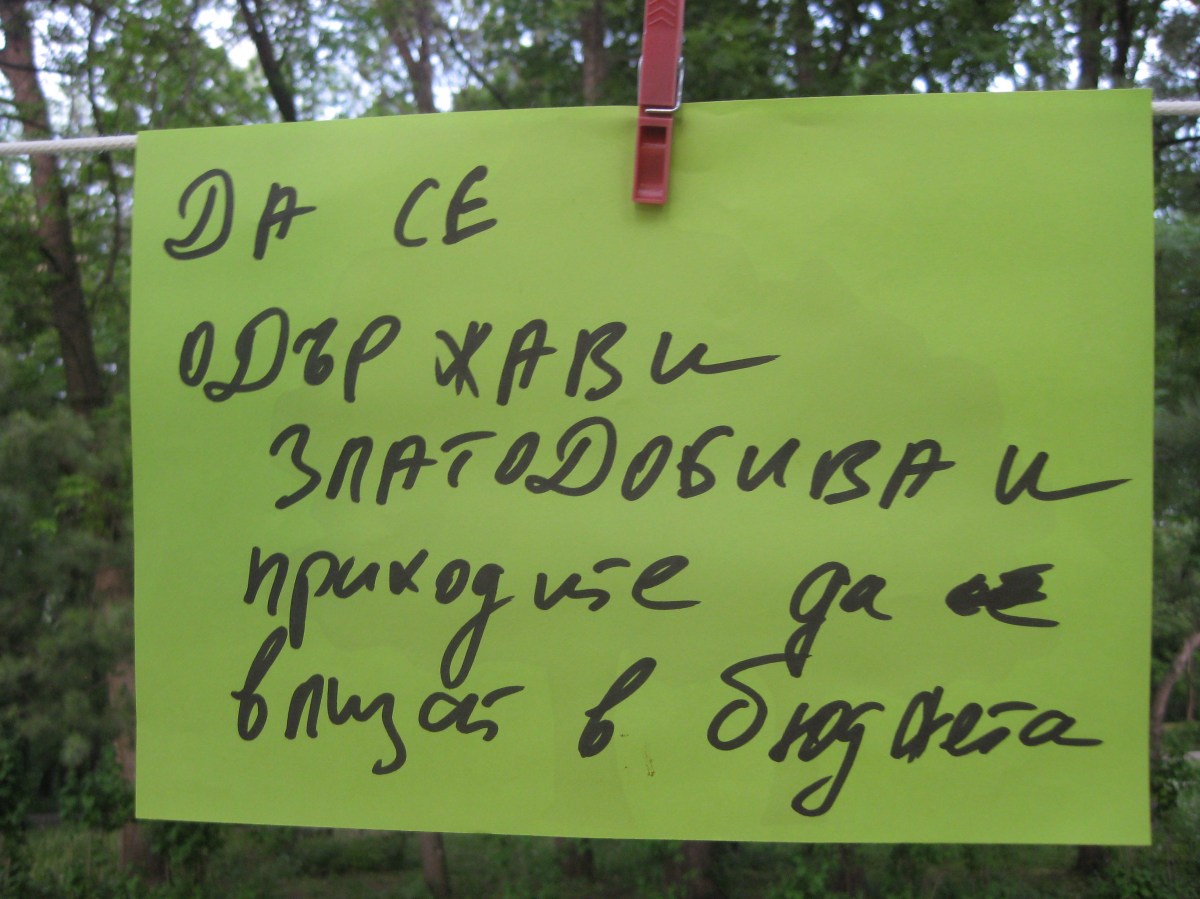 ДА СЕ
ОДЪРЖАВИ
ЗЛАТОДОБИВА И
приходите да
влизат в бюджета